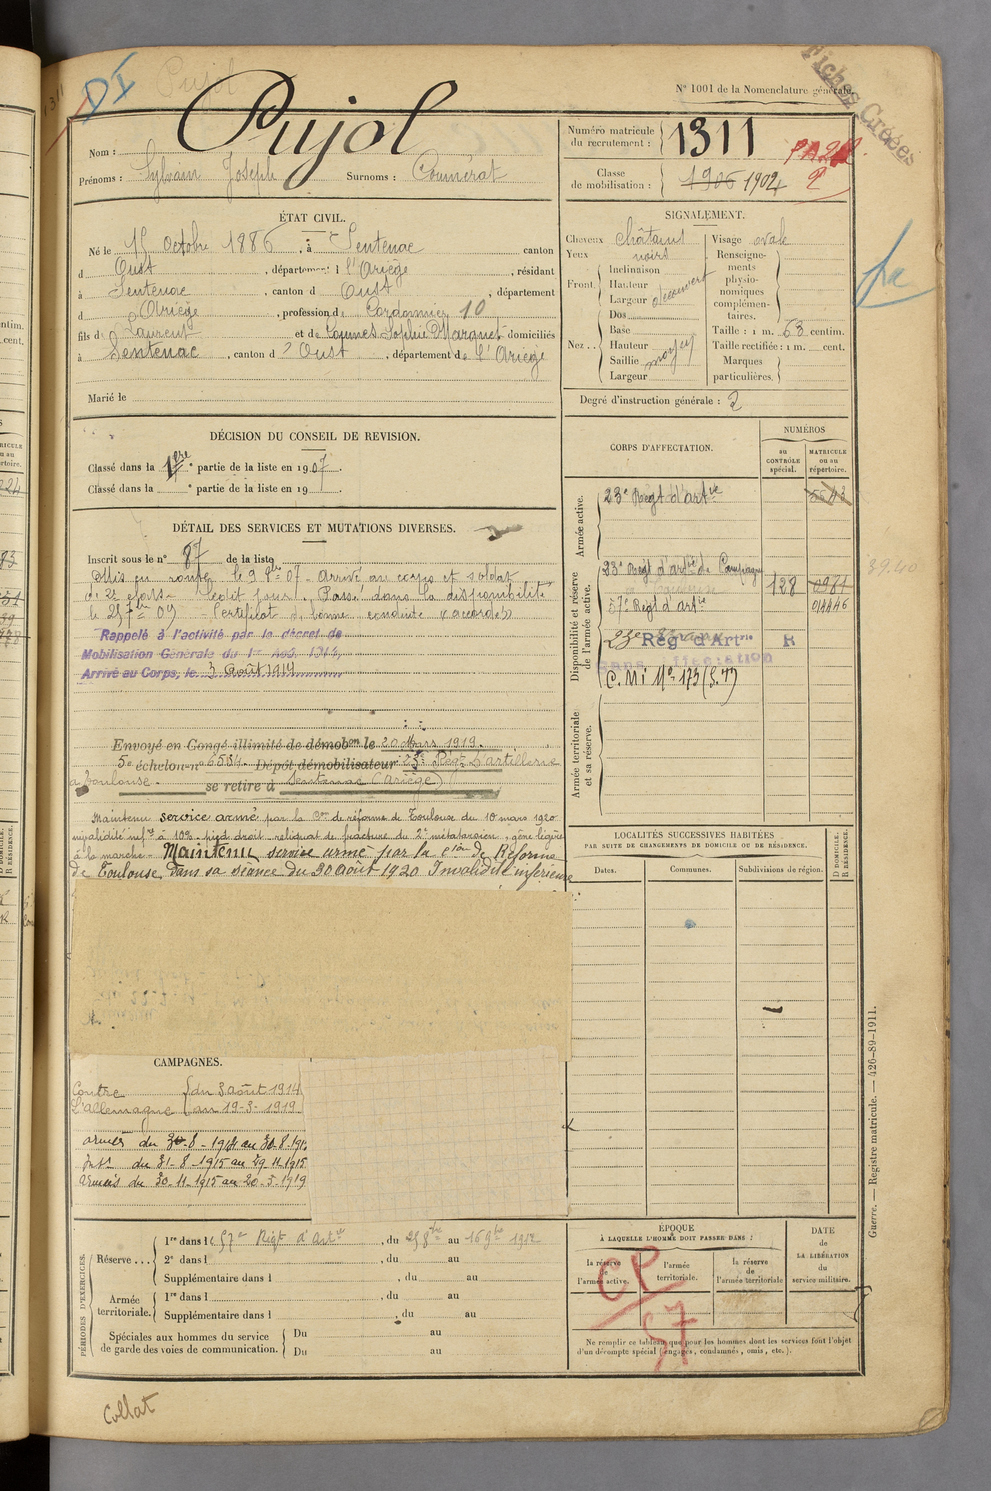 DI
Pujol
N° 1001 de la Nomenclature générale.
Fiches Créées
Nom : Pujol
Prénoms : Sylvain Joseph Surnoms : Coumérat
Numéro matricule du recrutement : 1311
Classe de mobilisation : 1906 1904
ÉTAT CIVIL.
Né le 15 Octobre 1886, à Sentenac canton
d Oust, département d l'Ariège, résidant
à Sentenac, canton d Oust, département
d Ariège, profession d Cordonnier 10
fils de Laurent et de Sophie domiciliés
à Sentenac, canton d Oust, département de l'Ariège
Marié le
SIGNALEMENT.
Cheveux châtains
Yeux noirs
Front. Inclinaison
Hauteur
Largeur découvert
Nez.. Dos
Base
Hauteur
Saillie moyen
Largeur
Visage ovale
Renseignements physionomiques complémentaires.
Taille : 1 m. 63 centim.
Taille rectifiée : 1 m. cent.
Marques particulières.
Degré d'instruction générale : 2
DÉCISION DU CONSEIL DE REVISION.
Classé dans la 1ère partie de la liste en 1907.
Classé dans la ° partie de la liste en 19 .
DÉTAIL DES SERVICES ET MUTATIONS DIVERSES.
Inscrit sous le n° 87 de la liste
Mis en route le 3 8bre 07 - Arrivé au corps et soldat
de 2e classe ledit jour. Passé dans la disponibilité
le 25 7bre 09 - Certificat de bonne conduite "accordé"
Rappelé à l'activité par le décret de
Mobilisation Générale du 1er Aoû. 1914,
Arrivé au Corps, le 3 Août 1914
Envoyé en Congé illimité de démobon le 20 Mars 1919.
5e échelon n° 6584 Dépôt démobilisateur 23e Régt d'artillerie
à Toulouse se retire à Sentenac (Ariège)
Maintenu service armé par la Con de réforme de Toulouse du 10 mars 1920
invalidité infre à 10% pied droit reliquat de fracture du 2e métatarsien, gêne légère
à la marche. Maintenu service armé par la Con de Réforme
de Toulouse, dans sa séance du 20 août 1920 Invalidité inférieure
CORPS D'AFFECTATION.
NUMÉROS
au CONTRÔLE spécial.
MATRICULE ou au répertoire.
Armée active.
23e Régt d'artie
Disponibilité et réserve de l'armée active.
23e Régt d'artie de Campagne 128
57e Régt d'artie
23e Rég d'Artrie R
sans affectation
C.M. No 173 (S.T)
Armée territoriale et sa réserve.
LOCALITÉS SUCCESSIVES HABITÉES
PAR SUITE DE CHANGEMENTS DE DOMICILE OU DE RÉSIDENCE.
Dates. Communes. Subdivisions de région. D DOMICILE. R RÉSIDENCE.
CAMPAGNES.
Contre du 3 août 1914
L'allemagne au 19-3-1919
Int du 31-8-1915 au 29 11 1915
armées du 30-11-1915 au 20-3-1919
PÉRIODES D'EXERCICES.
Réserve... 1re dans le 57e Régt d'Artie, du 25 8bre au 16 9bre 1912
2e dans l , du au
Supplémentaire dans l , du au
Armée territoriale. 1re dans l , du au
Supplémentaire dans l , du au
Spéciales aux hommes du service de garde des voies de communication. Du au
Du au
ÉPOQUE
À LAQUELLE L'HOMME DOIT PASSER DANS :
la réserve de l'armée active.
l'armée territoriale.
la réserve de l'armée territoriale
DATE de LA LIBÉRATION du service militaire.
CP
57
Ne remplir ce tableau que pour les hommes dont les services font l'objet
d'un décompte spécial (engagés, condamnés, omis, etc.).
Guerre. — Registre matricule. — 426-89-1911.
Collat